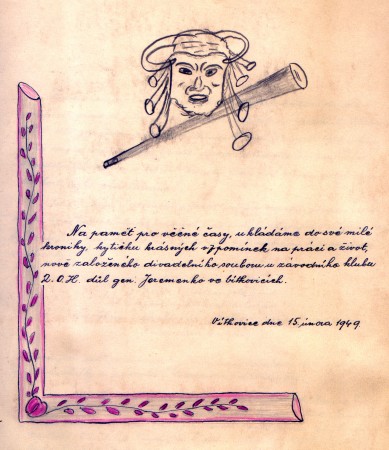 Na paměť pro věčné časy, ukládáme do své milé
kroniky kytičku krásných vzpomínek na práci a život,
nově založeného divadelního souboru u závodního klubu
R.O.H. důl gen. Jeremenko ve Vítkovicích.
Vítkovice dne 15. února 1949